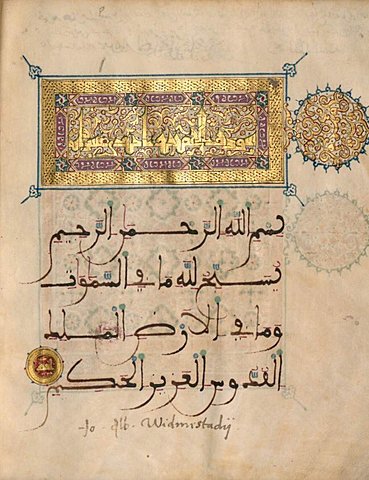 بسم الله الرحمن الرحيم
يسبح لله ما في السموت
وما في الارض الملك
القدوس العزيز الحكيم
Jo. Alb. Widmestadij